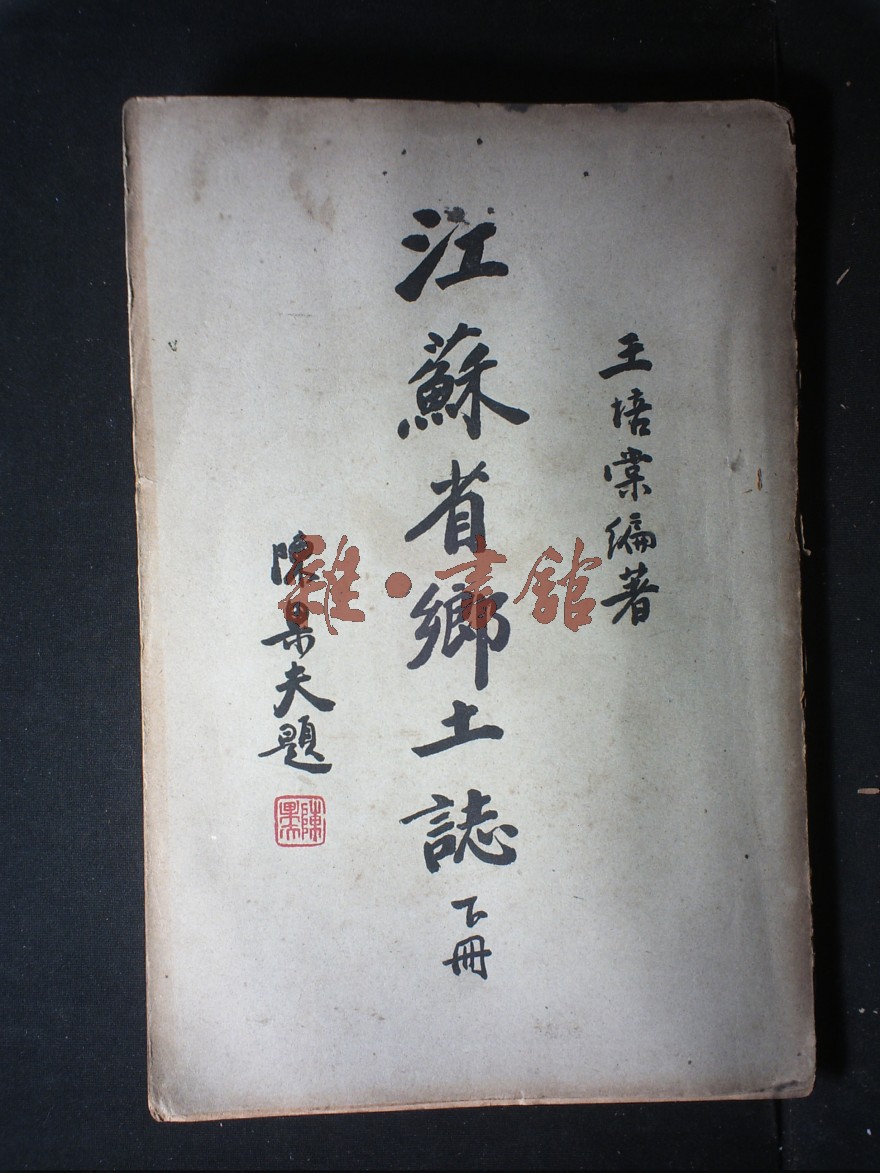 王培棠編著
江蘇省鄉土誌下冊
陳果夫題
陳果夫
雜·書館